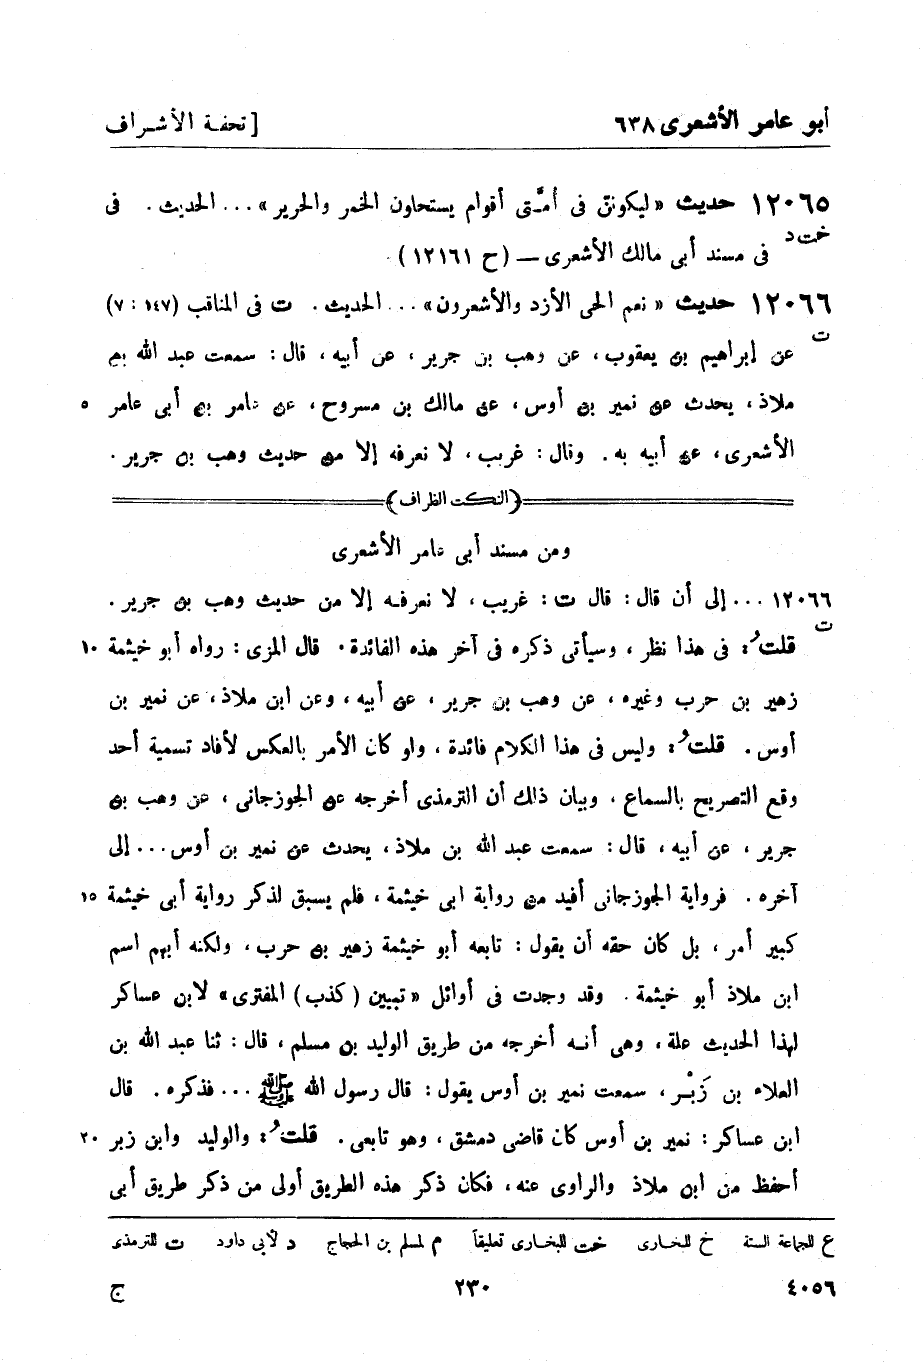 أبو عامر الأشعرى ٦٣٨ [ تحفة الأشراف
١٢٠٦٥ حديث « ليكوننّ فى أمتى أقوام يستحلون الخمر والحرير » ... الحديث . فى
خت د فى مسند أبى مالك الأشعرى — (ح ١٢١٦١) .
١٢٠٦٦ حديث « نعم الحى الأزد والأشعرون» ... الحديث . ت فى المناقب (١٤٧ : ٧)
ت عن إبراهيم بن يعقوب ، عن وهب بن جرير ، عن أبيه ، قال : سمعت عبد الله بن
ملاذ ، يحدث عن نمير بن أوس ، عن مالك بن مسروح ، عن عامر بن أبى عامر ٥
الأشعرى ، عن أبيه به . وقال : غريب ، لا نعرفه إلا من حديث وهب بن جرير .
(النكت الظراف)
ومن مسند أبى عامر الأشعرى
١٢٠٦٦ ... إلى أن قال : قال ت : غريب ، لا نعرفه إلا من حديث وهب بن جرير .
ت قلتُ : فى هذا نظر ، وسيأتى ذكره فى آخر هذه الفائدة . قال المزى : رواه أبو خيثمة ١٠
زهير بن حرب وغيره ، عن وهب بن جرير ، عن أبيه ، وعن ابن ملاذ ، عن نمير بن
أوس . قلتُ : وليس فى هذا الكلام فائدة ، ولو كان الأمر بالعكس لأفاد تسمية أحد
وقع التصريح بالسماع ، وبيان ذلك أن الترمذى أخرجه عن الجوزجانى ، عن وهب بن
جرير ، عن أبيه ، قال : سمعت عبد الله بن ملاذ ، يحدث عن نمير بن أوس ... إلى
آخره . فرواية الجوزجانى أفيد من رواية ابى خيثمة ، فلم يسبق لذكر رواية أبى خيثمة ١٥
كبير أمر ، بل كان حقه أن يقول : تابعه أبو خيثمة زهير بن حرب ، ولكنه أبهم اسم
ابن ملاذ أبو خيثمة . وقد وجدت فى أوائل « تبيين (كذب) المفترى » لابن عساكر
لهذا الحديث علة ، وهى أنه أخرجه من طريق الوليد بن مسلم ، قال : ثنا عبد الله بن
العلاء بن زَبْر ، سمعت نمير بن أوس يقول : قال رسول الله ﷺ ... فذكره . قال
ابن عساكر : نمير بن أوس كان قاضى دمشق ، وهو تابعى . قلتُ : والوليد وابن زبر ٢٠
أحفظ من ابن ملاذ والراوى عنه ، فكان ذكر هذه الطريق أولى من ذكر طريق أبى
ع للجماعة الستة خ للبخارى خت للبخارى تعليقاً م لمسلم بن الحجاج د لأبى داود ت للترمذى
٤٠٥٦ ٢٣٠ ج